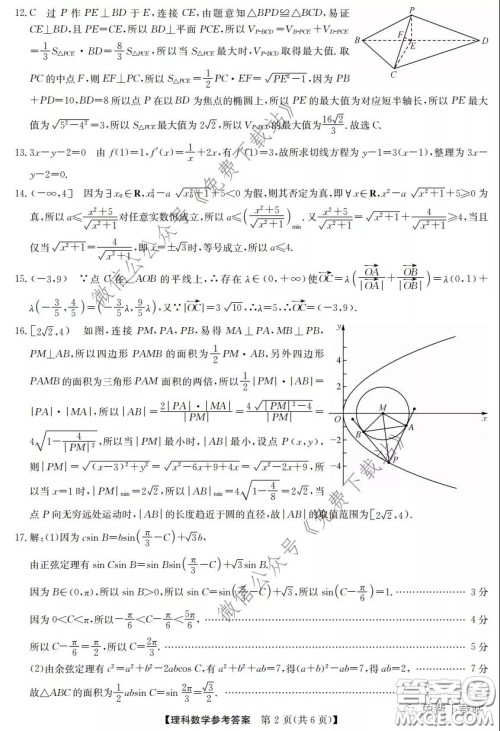 12. C 过 P 作 PE⊥BD 于 E,连接 CE,由题意知△BPD≌△BCD,易证
CE⊥BD,且 PE=CE,所以 BD⊥平面 PCE,所以 V_{P-BCD}=V_{B-PCE}+V_{D-PCE}=
1/3 S_{△PCE}·BD=8/3 S_{△PCE},所以当 S_{△PCE} 最大时,V_{P-BCD} 取得最大值. 取
PC 的中点 F,则 EF⊥PC,所以 S_{△PCE}=1/2 PC·EF=√(PE²-1),因为 PB
+PD=10,BD=8 所以点 P 在以 BD 为焦点的椭圆上,所以 PE 的最大值为对应短半轴长,所以 PE 最大
值为√(5²-4²)=3,所以 S_{△PCE} 最大值为 2√2,所以 V_{P-BCD} 的最大值为 16√2/3. 故选 C.
13. 3x-y-2=0 由 f(1)=1,f′(x)=1/x+2x,有 f′(1)=3,故所求切线方程为 y-1=3(x-1),整理为 3x
-y-2=0.
14. (-∞,4] 因为∃x₀∈R,x₀²-a√(x₀²+1)+5<0 为假,则其否定为真,即∀x∈R,x²-a√(x²+1)+5≥0 为
真,所以 a≤(x²+5)/√(x²+1) 对任意实数恒成立,所以 a≤((x²+5)/√(x²+1))_{min}. 又 (x²+5)/√(x²+1)=√(x²+1)+4/√(x²+1)≥4,当且
仅当√(x²+1)=4/√(x²+1),即 x=±√3时,等号成立,所以 a≤4.
15. (-3,9) ∵点 C 在∠AOB 的平线上,∴存在 λ∈(0,+∞)使 OC=λ(OA/|OA|+OB/|OB|)=λ(0,1)+
λ(-3/5,4/5)=(-3/5λ,9/5λ),又∵|OC|=3√10,∴λ=5,∴OC=(-3,9).
16. [2√2,4) 如图,连接 PM,PA,PB,易得 MA⊥PA,MB⊥PB,
PM⊥AB,所以四边形 PAMB 的面积为 1/2 PM·AB,另外四边形
PAMB 的面积为三角形 PAM 面积的两倍,所以 1/2|PM|·|AB|=
|PA|·|MA|,所以|AB|=2|PA|·|MA|/|PM|=4√(|PM|²-4)/|PM|=
4√(1-4/|PM|²),所以当|PM|最小时,|AB|最小,设点 P(x,y),
则|PM|=√((x-3)²+y²)=√(x²-6x+9+4x)=√(x²-2x+9),所
以当 x=1 时,|PM|_{min}=2√2,所以|AB|_{min}=4√(1-4/8)=2√2,当
点 P 向无穷远处运动时,|AB|的长度趋近于圆的直径,故|AB|的取值范围为[2√2,4).
17. 解:(1)因为 csin B=bsin(π/3-C)+√3b,
由正弦定理有 sin Csin B=sin Bsin(π/3-C)+√3sin B.
因为 B∈(0,π),所以 sin B>0,所以 sin C=sin(π/3-C)+√3,所以 sin(C-π/6)=1. 3 分
因为 0<C<π,所以-π/6<C-π/6<5π/6, 4 分
所以 C-π/6=π/2,所以 C=2π/3. 5 分
(2)由余弦定理有 c²=a²+b²-2abcos C,有 a²+b²+ab=12,得(a+b)²-ab=12,得 ab=(a+b)²-12, 7 分
故△ABC 的面积为 1/2 absin C=
【理科数学参考答案 第 2 页(共 6 页)】
微信公众号《免费下载站》
微信公众号《免费下载站》
答案圈
P
B
E
F
D
C
y
4
2
O
M
x
A
B
P
-2
-4